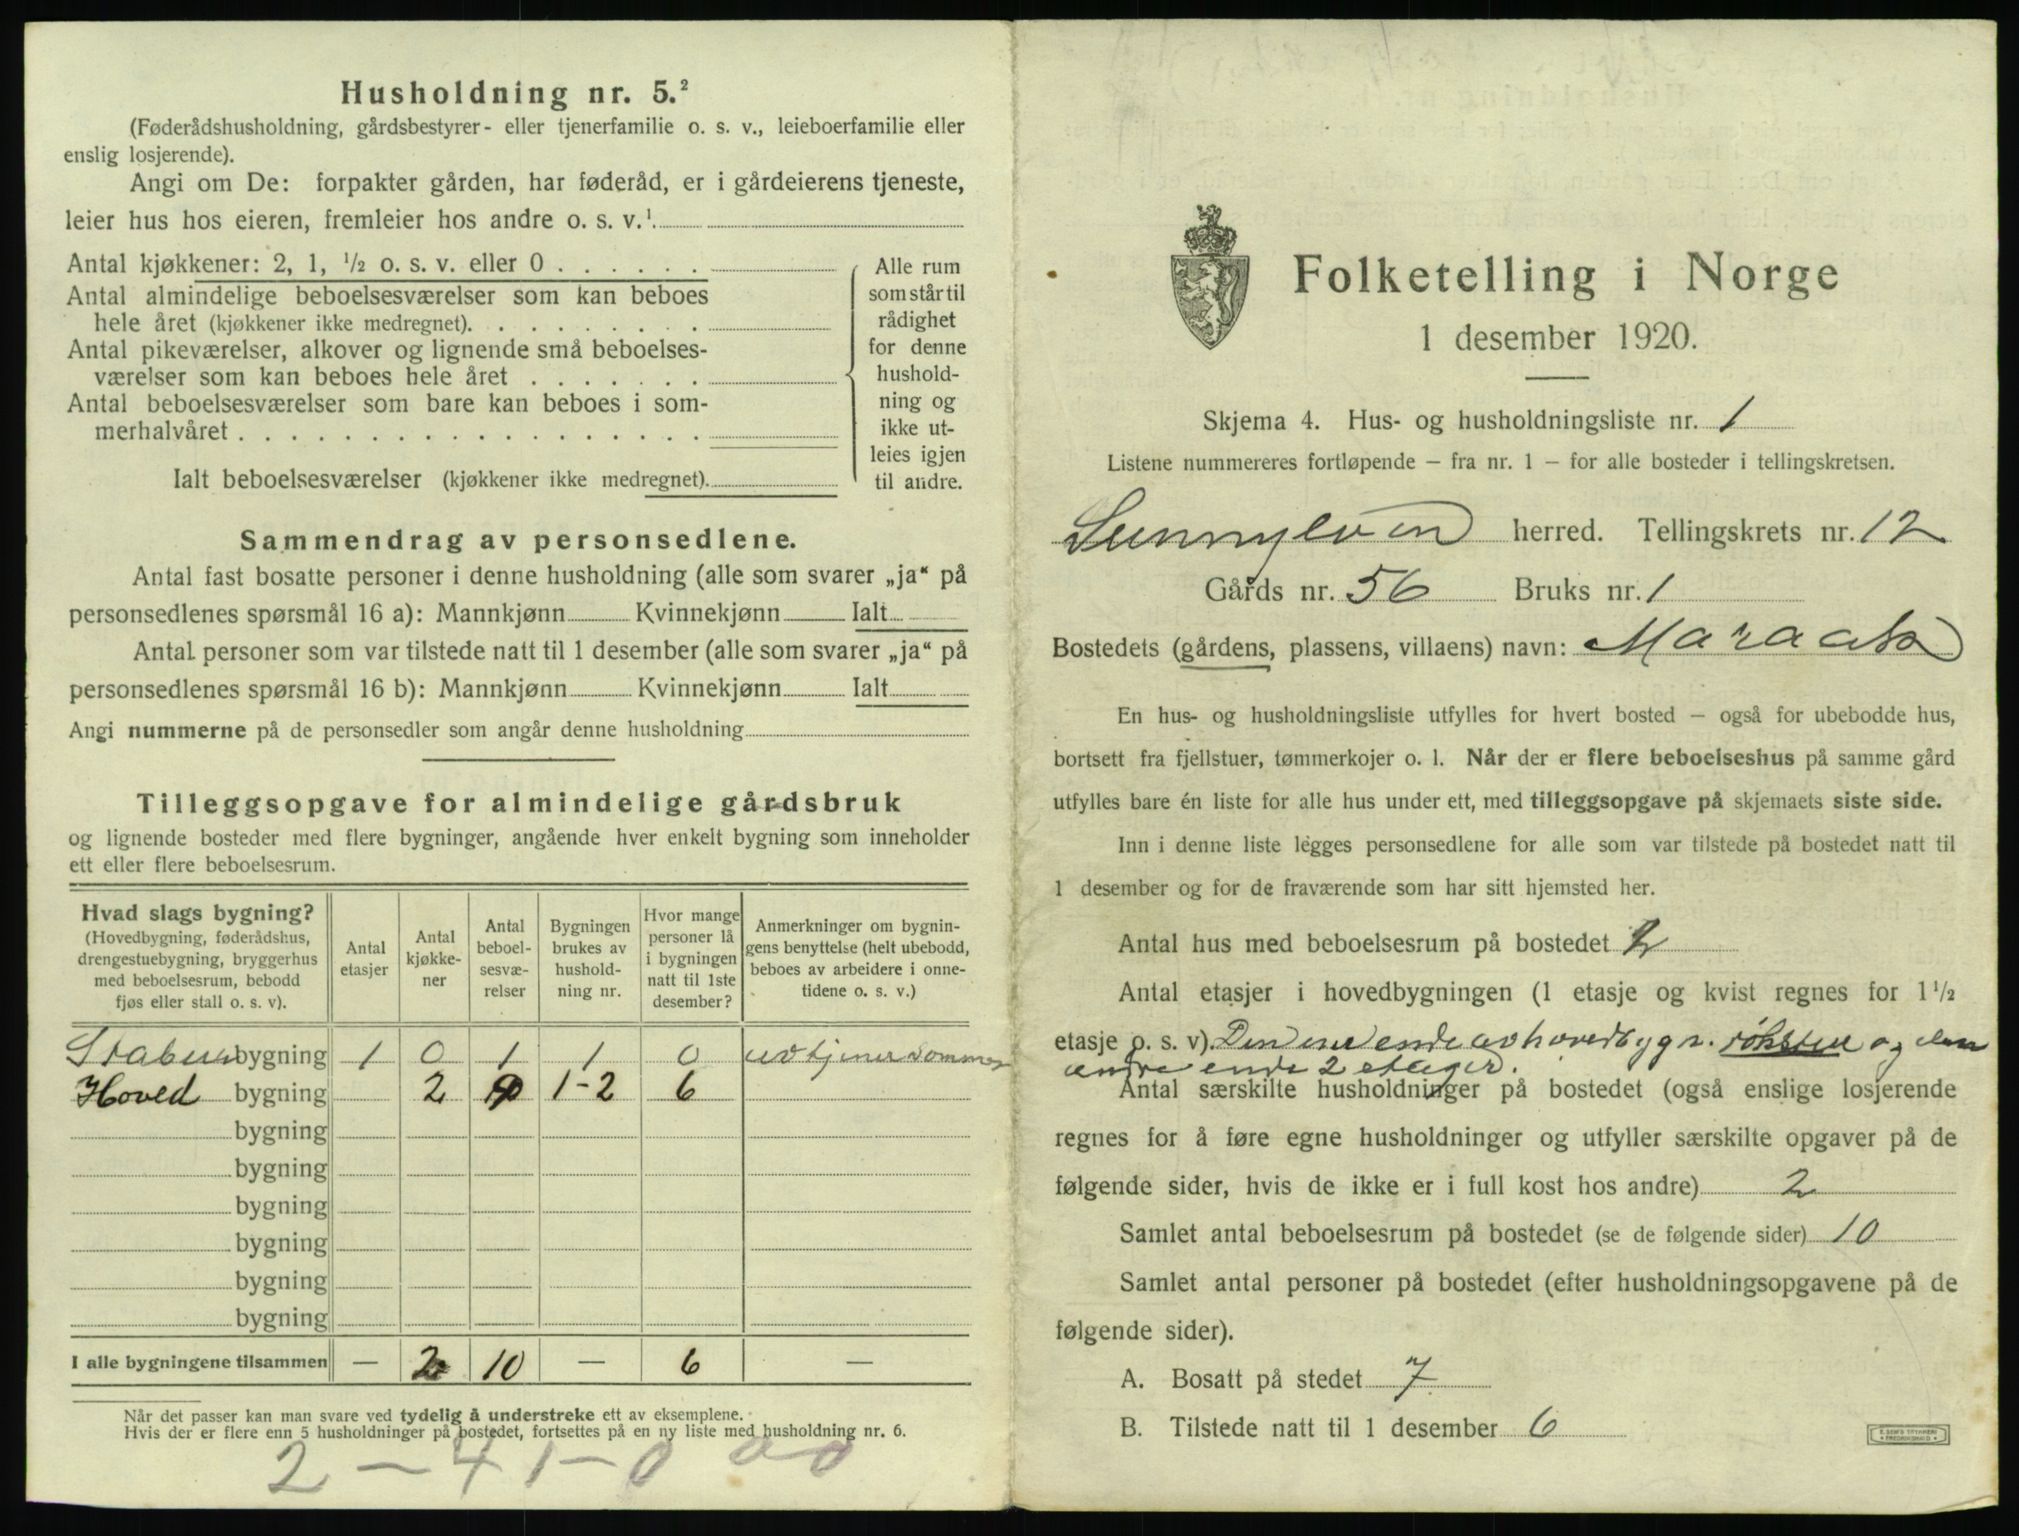 Husholdning nr. 5.²
(Føderådshusholdning, gårdsbestyrer- eller tjenerfamilie o. s. v., leieboerfamilie eller
enslig losjerende).
Angi om De: forpakter gården, har føderåd, er i gårdeierens tjeneste,
leier hus hos eieren, fremleier hos andre o. s. v.¹
Antal kjøkkener: 2, 1, ½ o. s. v. eller 0
Antal almindelige beboelsesværelser som kan beboes
hele året (kjøkkener ikke medregnet).
Antal pikeværelser, alkover og lignende små beboelses-
værelser som kan beboes hele året
Antal beboelsesværelser som bare kan beboes i som-
merhalvåret
Ialt beboelsesværelser (kjøkkener ikke medregnet).
Alle rum
som står til
rådighet
for denne
hushold-
ning og
ikke ut-
leies igjen
til andre.
Sammendrag av personsedlene.
Antal fast bosatte personer i denne husholdning (alle som svarer „ja“ på
personsedlenes spørsmål 16 a): Mannkjønn Kvinnekjønn Ialt
Antal personer som var tilstede natt til 1 desember (alle som svarer „ja“ på
personsedlenes spørsmål 16 b): Mannkjønn Kvinnekjønn Ialt
Angi nummerne på de personsedler som angår denne husholdning
Tilleggsopgave for almindelige gårdsbruk
og lignende bosteder med flere bygninger, angående hver enkelt bygning som inneholder
ett eller flere beboelsesrum.
Hvad slags bygning?
(Hovedbygning, føderådshus,
drengestuebygning, bryggerhus
med beboelsesrum, bebodd
fjøs eller stall o. s. v).
Antal
etasjer
Antal
kjøkke-
ner
Antal
beboel-
sesvæ-
relser
Bygningen
brukes av
hushold-
ning nr.
Hvor mange
personer lå
i bygningen
natt til 1ste
desember?
Anmerkninger om bygnin-
gens benyttelse (helt ubebodd,
beboes av arbeidere i onne-
tidene o. s. v.)
Stabur bygning 1 0 1 1 0
Hoved bygning 2 9 1-2 6
bygning
bygning
bygning
bygning
bygning
bygning
I alle bygningene tilsammen — 2 10 — 6 —
Når det passer kan man svare ved tydelig å understreke ett av eksemplene.
Hvis der er flere enn 5 husholdninger på bostedet, fortsettes på en ny liste med husholdning nr. 6.
2 — 41 — 0 00
Folketelling i Norge
1 desember 1920.
Skjema 4. Hus- og husholdningsliste nr. 1
Listene nummereres fortløpende — fra nr. 1 — for alle bosteder i tellingskretsen.
Sunnylven herred. Tellingskrets nr. 12
Gårds nr. 56 Bruks nr. 1
Bostedets (gårdens, plassens, villaens) navn: Maraak
En hus- og husholdningsliste utfylles for hvert bosted — også for ubebodde hus,
bortsett fra fjellstuer, tømmerkojer o. l. Når der er flere beboelseshus på samme gård
utfylles bare én liste for alle hus under ett, med tilleggsopgave på skjemaets siste side.
Inn i denne liste legges personsedlene for alle som var tilstede på bostedet natt til
1 desember og for de fraværende som har sitt hjemsted her.
Antal hus med beboelsesrum på bostedet 2
Antal etasjer i hovedbygningen (1 etasje og kvist regnes for 1½
etasje o. s. v). Den ene ende av hovedbygn. og den
andre ende 2 etager.
Antal særskilte husholdninger på bostedet (også enslige losjerende
regnes for å føre egne husholdninger og utfyller særskilte opgaver på de
følgende sider, hvis de ikke er i full kost hos andre) 2
Samlet antal beboelsesrum på bostedet (se de følgende sider) 10
Samlet antal personer på bostedet (efter husholdningsopgavene på de
følgende sider).
A. Bosatt på stedet 7
B. Tilstede natt til 1 desember 6